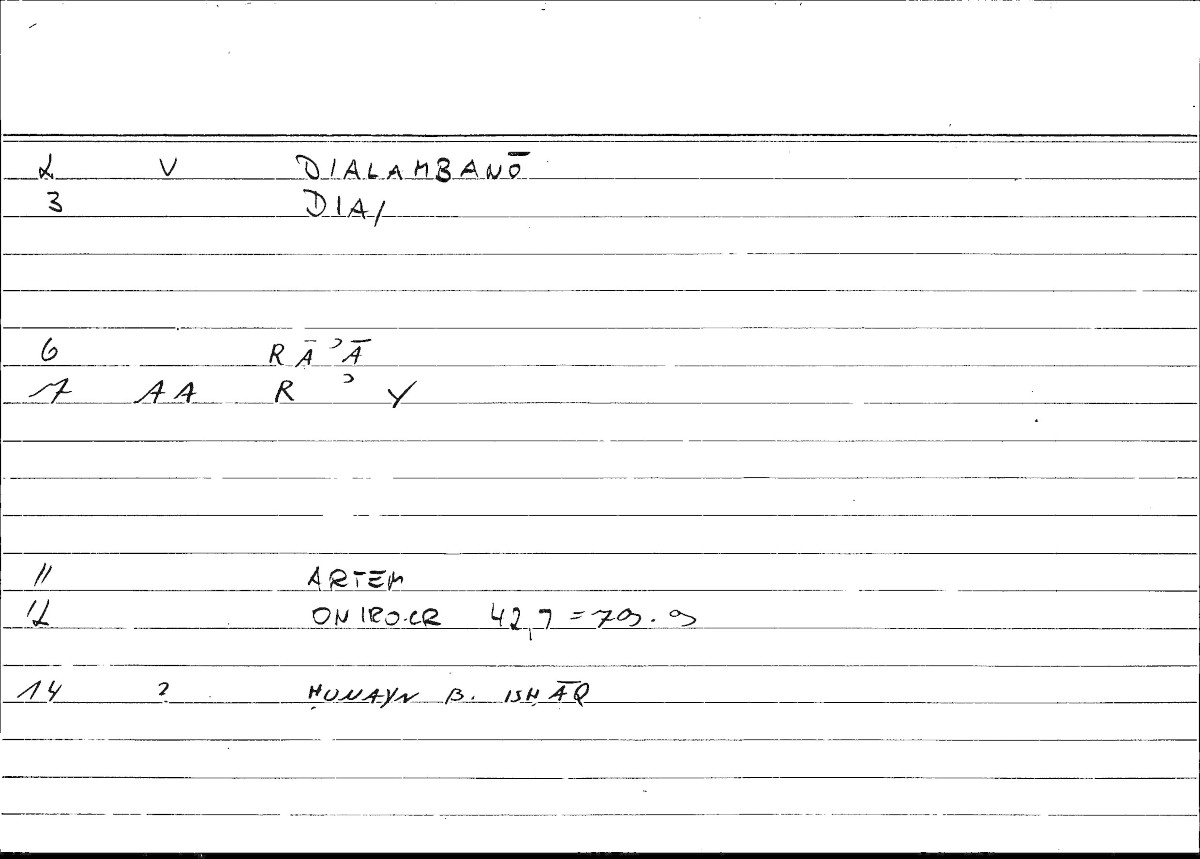 2 V DIALAMBANŌ
3 DIA/
6 RĀʾĀ
7 AA R ʾ Y
11 ARTEM
12 ONIROCR 42,7 = 79.9
14 2 ḤUNAYN B. ISḤĀQ